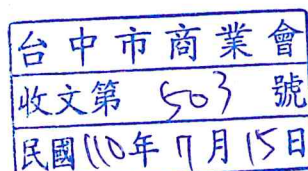 台中市商業會
收文第 503 號
民國110年7月15日